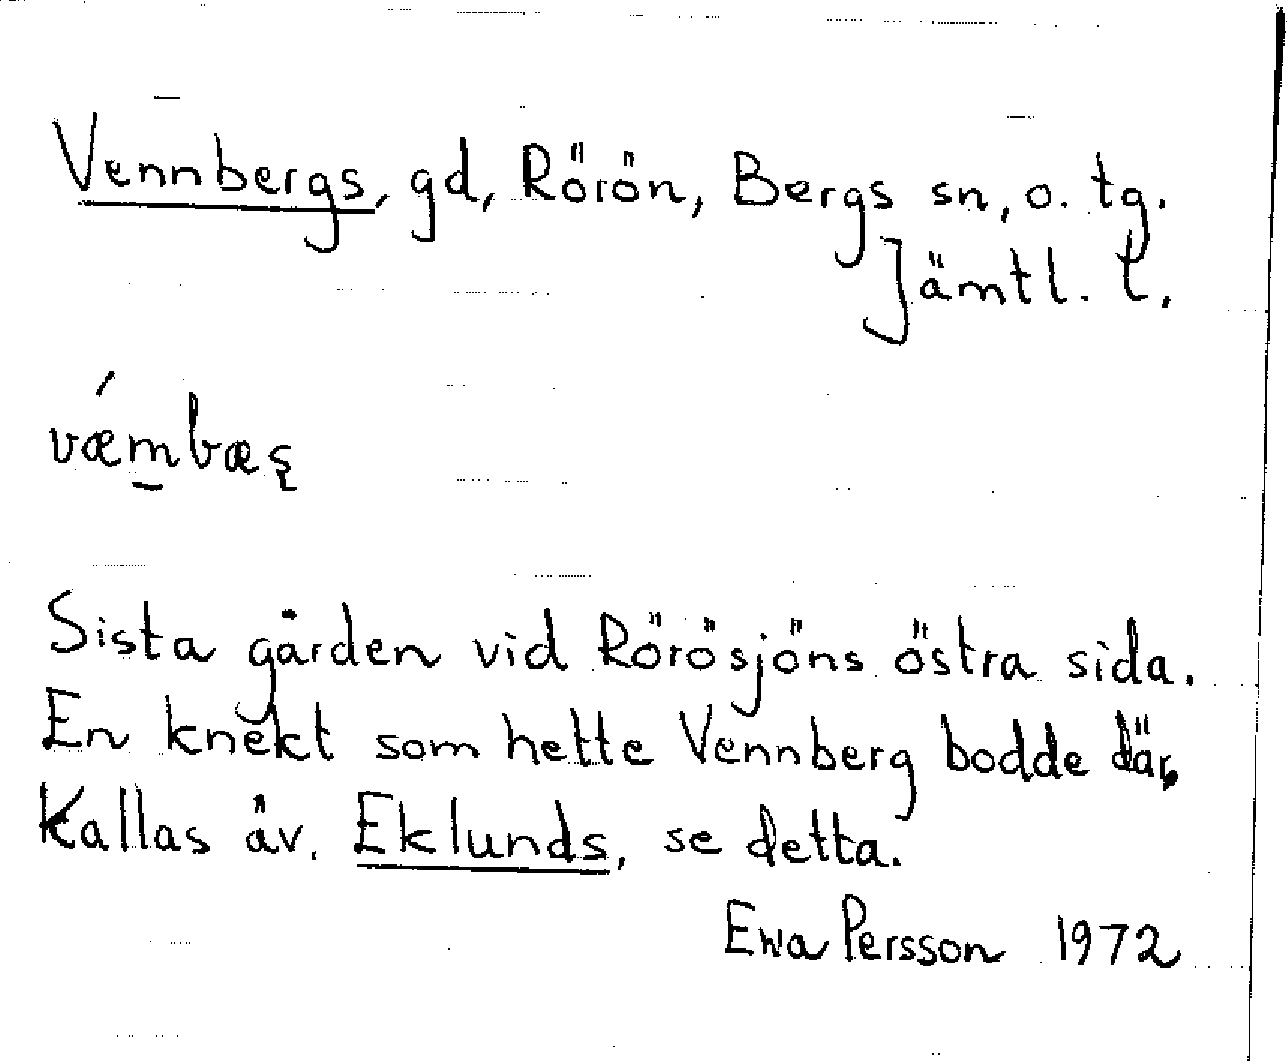 Vennbergs, gd, Rörön, Bergs sn, o. tg.
Jämtl. l.
vǽm̱bæş
Sista gården vid Rörösjöns östra sida.
En knekt som hette Vennberg bodde där,
Kallas äv. Eklunds, se detta.
Ewa Persson 1972